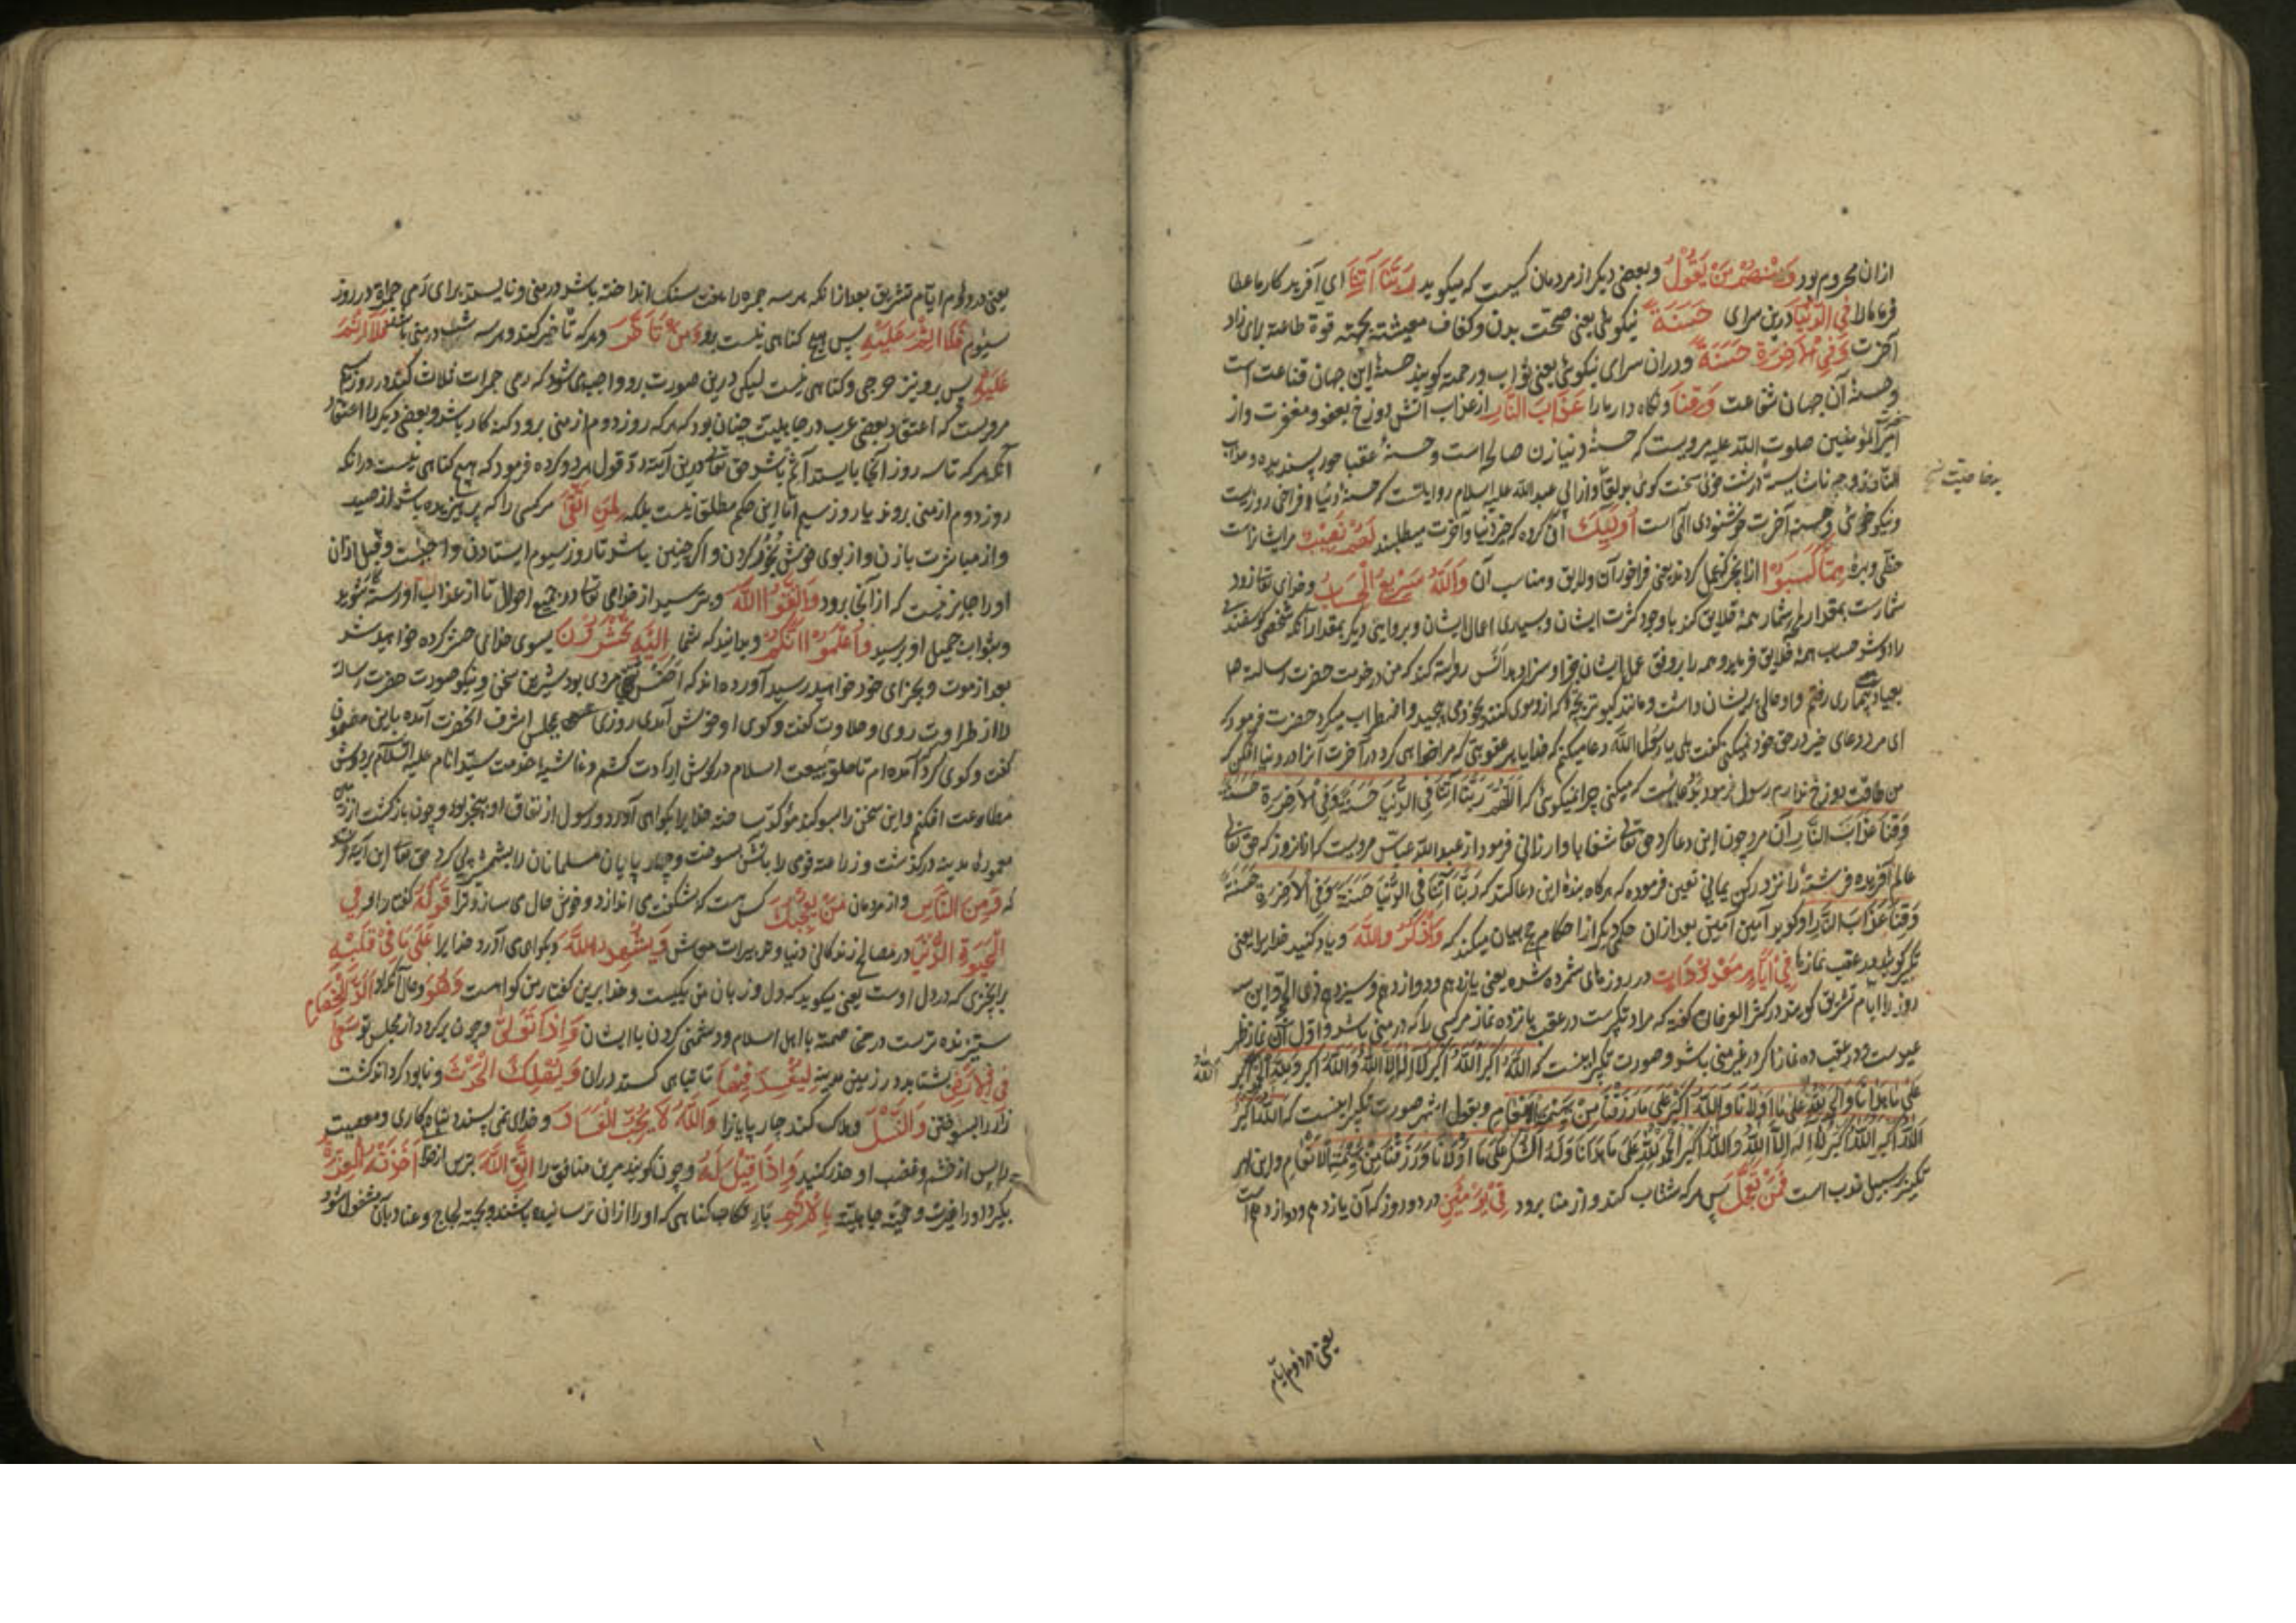 ازان محروم بود وَمِنْهُمْ مَنْ يَقُولُ وبعضی دیکر از مردمان کیست که میکوید رَبَّنَا آتِنَا ای آفریدکار ما عطا
فرما ما را فِي الدُّنْيَا درین سرای حَسَنَةً نیکوئی یعنی صحت بدن و کفاف معیشته بجهته قوة طاعة برای زاد
آخرت وَفِي الْآخِرَةِ حَسَنَةً ودران سرای نیکوئی یعنی ثواب ورحمة کویند حسنهٔ این جهان قناعت است
وحسنهٔ آن جهان شفاعت وَقِنَا ونکاه دار ما را عَذَابَ النَّارِ از عذاب آتش دوزخ بعفو ومغفرت واز
امیرالمؤمنین صلوت الله علیه مرویست که حسنهٔ دنیا زن صالحه است وحسنهٔ عقبا حور پسندیده وعذاب
النار زوجهٔ ناشایسته درشت خوی سخت کوی واز ابی عبدالله علیه السلام روایتست که حسنهٔ دنیا فراخی روزیست
ونیکو خوئی وحسنهٔ آخرت خوشنودی الهی است أُولَئِكَ آن کروه که خیر دنیا وآخرت میطلبند لَهُمْ نَصِيبٌ مرایشانراست
حظّی وبهرهٔ مِمَّا كَسَبُوا ازانچه کرده‌اند یعنی فراخور آن ولایق ومناسب آن وَاللَّهُ سَرِيعُ الْحِسَابِ وخدای تعا زود
شمارست بمقدار شمار همهٔ خلایق کند باوجود کثرت ایشان وبسیاری اعمال ایشان وبروایتی دیکر بمقدار آنکه شخصی کوسفندی
را دوشد حساب همهٔ خلایق فرماید وهمه را بروفق عمل ایشان جزا وسزا دهد انس روایة کند که من در خدمت حضرت رسالت
بعیادت بیماری رفتم واو حالی پریشان داشت ومانند کبوتر بچهٔ که ازو موی کنند بخود می پیچید واضطراب میکرد حضرت فرمود که
ای مرد دعای خیر در حق خود نمیکنی کفت بلی یا رسول الله دعا میکنم که خدایا هر عقوبتی که مرا خواهی کرد در آخرت آنرا در دنیا کن که
من طاقت دوزخ ندارم رسول فرمود که میکنی چرا نمیکوئی که اَللّٰهُمَّ رَبَّنَا آتِنَا فِي الدُّنْيَا حَسَنَةً وَفِي الْآخِرَةِ حَسَنَةً
وَقِنَا عَذَابَ النَّارِ آن مرد چون این دعا کرد حق تعالی شفا باو ارزانی فرمود از عبدالله عباس مرویست که ازانروز که حق تعالی
عالم آفریده فرشتهٔ را نزد رکن یمانی تعین فرموده که هرکاه بندهٔ این دعا کند که رَبَّنَا آتِنَا فِي الدُّنْيَا حَسَنَةً وَفِي الْآخِرَةِ حَسَنَةً
وَقِنَا عَذَابَ النَّارِ او کوید آمین آمین بعد ازان حکم دیکر از احکام حج بیان میکند که وَاذْكُرُوا اللَّهَ ویاد کنید خدا یرا یعنی
تکبیر کویید در عقب نمازها فِي أَيَّامٍ مَعْدُودَاتٍ در روزهای شمرده شده یعنی یازدهم ودوازدهم وسیزدهم ذی الحجه واین سه
روز را ایام تشریق کویند در کنز العرفان کفته که مراد تکبیرست در عقب پانزده نماز مرکسی را که در منی باشد واول آن نماز ظهر
عیدست ودر عقب ده نماز اکر در غیر منی باشد وصورت تکبیر اینست که اللّٰهُ اَكْبَرُ اللّٰهُ اَكْبَرُ لَا اِلٰهَ اِلَّا اللّٰهُ وَاللّٰهُ اَكْبَرُ
عَلَى مَا هَدَانَا وَالْحَمْدُ لِلّٰهِ عَلَى مَا اَوْلَانَا وَاللّٰهُ اَكْبَرُ عَلَى مَا رَزَقَنَا مِنْ بَهِيمَةِ الْاَنْعَامِ وبقول اشهر صورت تکبیر اینست که اللّٰه اکبر
اللّٰه اکبر لا اِلٰهَ اِلَّا اللّٰهُ وَاللّٰهُ اَكْبَرُ عَلَى مَا هَدَانَا وَلَهُ الشُّكْرُ عَلَى مَا اَوْلَانَا وَرَزَقَنَا مِنْ بَهِيمَةِ الْاَنْعَامِ واین امر
تکبیر بر سبیل ندب است فَمَنْ تَعَجَّلَ پس هرکه شتاب کند واز منا برود فِي يَوْمَيْنِ در دو روز که آن یازدهم ودوازدهم است
یعنی در دوم ایام
یعنی در دوم ایام تشریق بعد ازانکه هر سه جمره را هفت سنک انداخته باشد در منی ونایستد برای رمی جمرات در روز
سیوم فَلَا إِثْمَ عَلَيْهِ پس هیچ کناهی نیست برو وَمَنْ تَأَخَّرَ وهرکه تأخیر کند وهر سه شب در منی باشد فَلَا إِثْمَ
عَلَيْهِ پس برو نیز حرجی وکناهی نیست لیکن درین صورت برو واجب میشود که رمی جمرات ثلاث کند در روز سیم
مرویست که اعتقاد بعضی عرب در جاهلیت چنان بود که هرکه روز دوم از منی برود کنه کار باشد وبعضی دیکر را اعتقاد
آنکه هرکه تا سه روز آنجا بایستد آثم باشد حق تعالی درین آیة رد قول هر دو کرده فرمود که هیچ کناهی نیست در انکه
روز دوم از منی بروند یا روز سیم اما این حکم مطلق نیست بلکه لِمَنِ اتَّقَى مرکسی را که پرهیزیده باشد از صید
واز مباشرت با زن واز بوی خوش بخور کردن واکر چنین باشد تا روز سیوم ایستادن واجبست وقبل ازان
او را جایز نیست که از آنجا برود وَاتَّقُوا اللَّهَ وبترسید از خدای تعالی در جمیع احوال تا از عذاب او رسته شوید
وبثواب جمیل او برسید وَاعْلَمُوا أَنَّكُمْ وبدانید که شما إِلَيْهِ تُحْشَرُونَ بسوی خدای حشر کرده خواهید شد
بعد از موت وبجزای خود خواهید رسید آورده‌اند که اخنس مردی بود شیرین سخن ونیکو صورت حضرت رسالة
را از طراوت روی وحلاوت کفت وکوی او خوش آمدی روزی بمجلس اشرف آنحضرت آمده باین مضمون
کفت وکوی کرد که آمده‌ام تا حلقهٔ بیعت اسلام در کوش ارادت کشم وغاشیهٔ خدمت سید انام علیه السلام بر دوش
مطاوعت افکنم واین سخن را بسوکند مؤکد ساخته خدا یرا بکواهی آورد ورسول از نفاق او بیخبر بود وچون بازکشت از
معمورهٔ مدینه درکذشت وزراعت قومی را باتش بسوخت وچهار پایان مسلمانان را بشمشیر پی کرد حق تعا این آیة
که وَمِنَ النَّاسِ واز مردمان مَنْ يُعْجِبُكَ کسی هست که بشکفت می اندازد وخوش حال می سازد ترا قَوْلُهُ کفتار او فِي
الْحَيَاةِ الدُّنْيَا در مصالح زندکانی دنیا ومهمات معاش وَيُشْهِدُ اللَّهَ وبکواهی می آورد خدا یرا عَلَى مَا فِي قَلْبِهِ
برانچیزی که در دل اوست یعنی میکوید که دل وزبان من یکیست وخدا برین کفتار من کواهست وَهُوَ وحال آنکه او أَلَدُّ الْخِصَامِ
ستیزنده‌ترست در خصومة با اهل اسلام ودشمنی کردن با ایشان وَإِذَا تَوَلَّى وچون برکردد از مجلس تو سَعَى
فِي الْأَرْضِ بشتابد در زمین مدینه لِيُفْسِدَ فِيهَا تا تباهی کند دران وَيُهْلِكَ الْحَرْثَ ونابود کرداند کشت
زار را بسوختن وَالنَّسْلَ وهلاک کند چار پایانرا وَاللَّهُ لَا يُحِبُّ الْفَسَادَ وخدای نمی پسندد تباه کاری ومعصیت
را پس از خشم وغضب او حذر کنید وَإِذَا قِيلَ لَهُ وچون کویند مرین منافق را اتَّقِ اللَّهَ بترس از خدا أَخَذَتْهُ الْعِزَّةُ
بکیرد او را غیرت وحمیّت جاهلیّته بِالْإِثْمِ بارتکاب کناهی که او را ازان ترسانیده باشند وبجهته لجاج وعناد بآن مشغول شود